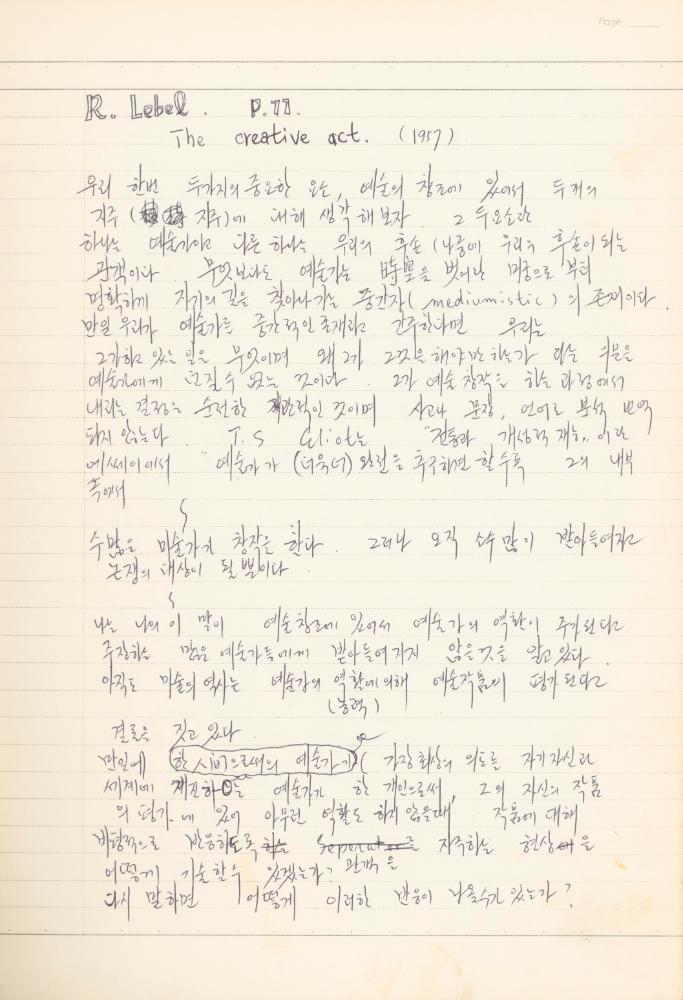 Page
R. Lebel. P.77.
The creative act. (1957)
우리 한번 두가지의 중요한 요소, 예술의 창조에 있어서 두개의
지주 (지주)에 대해 생각해보자. 그 두요소란
하나는 예술가이고 다른 하나는 우리의 후손 (나중에 우리의 후손이 되는
관객이다 무엇보다도 예술가는 時空을 벗어난 미궁으로 부터
명확하게 자기의 길을 찾아나가는 중간자(mediumistic)의 존재이다.
만일 우리가 예술가를 중간적인 존재라고 간주한다면 우리는
그가하고 있는 일은 무엇이며 왜 그가 그것을해야만 하는가 라는 의문을
예술가에게 던질수 없는 것이다. 그가 예술창작을 하는 과정에서
내리는 결정은 순전한 직관적인 것이며 사고나 문장, 언어로 분석 번역
되지 않는다. T.S Eliot는 "전통과 개성적 재능" 이란
에쎄이에서 "예술가가 (더욱더) 완전을 추구하면 할수록 그의 내부
속에서
수많은 미술가가 창작을 한다. 그러나 오직 소수 많이 받아들여지고
논쟁의 대상이 될 뿐이다.
나는 나의 이 말이 예술창조에 있어서 예술가의 역할이 주가된다고
주장하는 많은 예술가들에게 받아들여지지 않을것을 알고있다.
아직도 미술의 역사는 예술가의 역할에 의해 예술작품의 평가된다고
(능력)
결론을 짓고 있다.
만일에 한 시버으로써의 예술가가 ( 가장 최상의 의도를 자기자신과
세계에 예술가가 한 개인으로써, 그의 자신의 작품
의 평가에 있어 아무런 역할도 하지 않을때 작품에 대해
비평적으로 반응하도록 하는 Seperator를 자주하는 현상을
어떻게 기술할수 있겠는가? 관객을
다시 말하면 어떻게 이러한 반응이 나올수가 있는가?